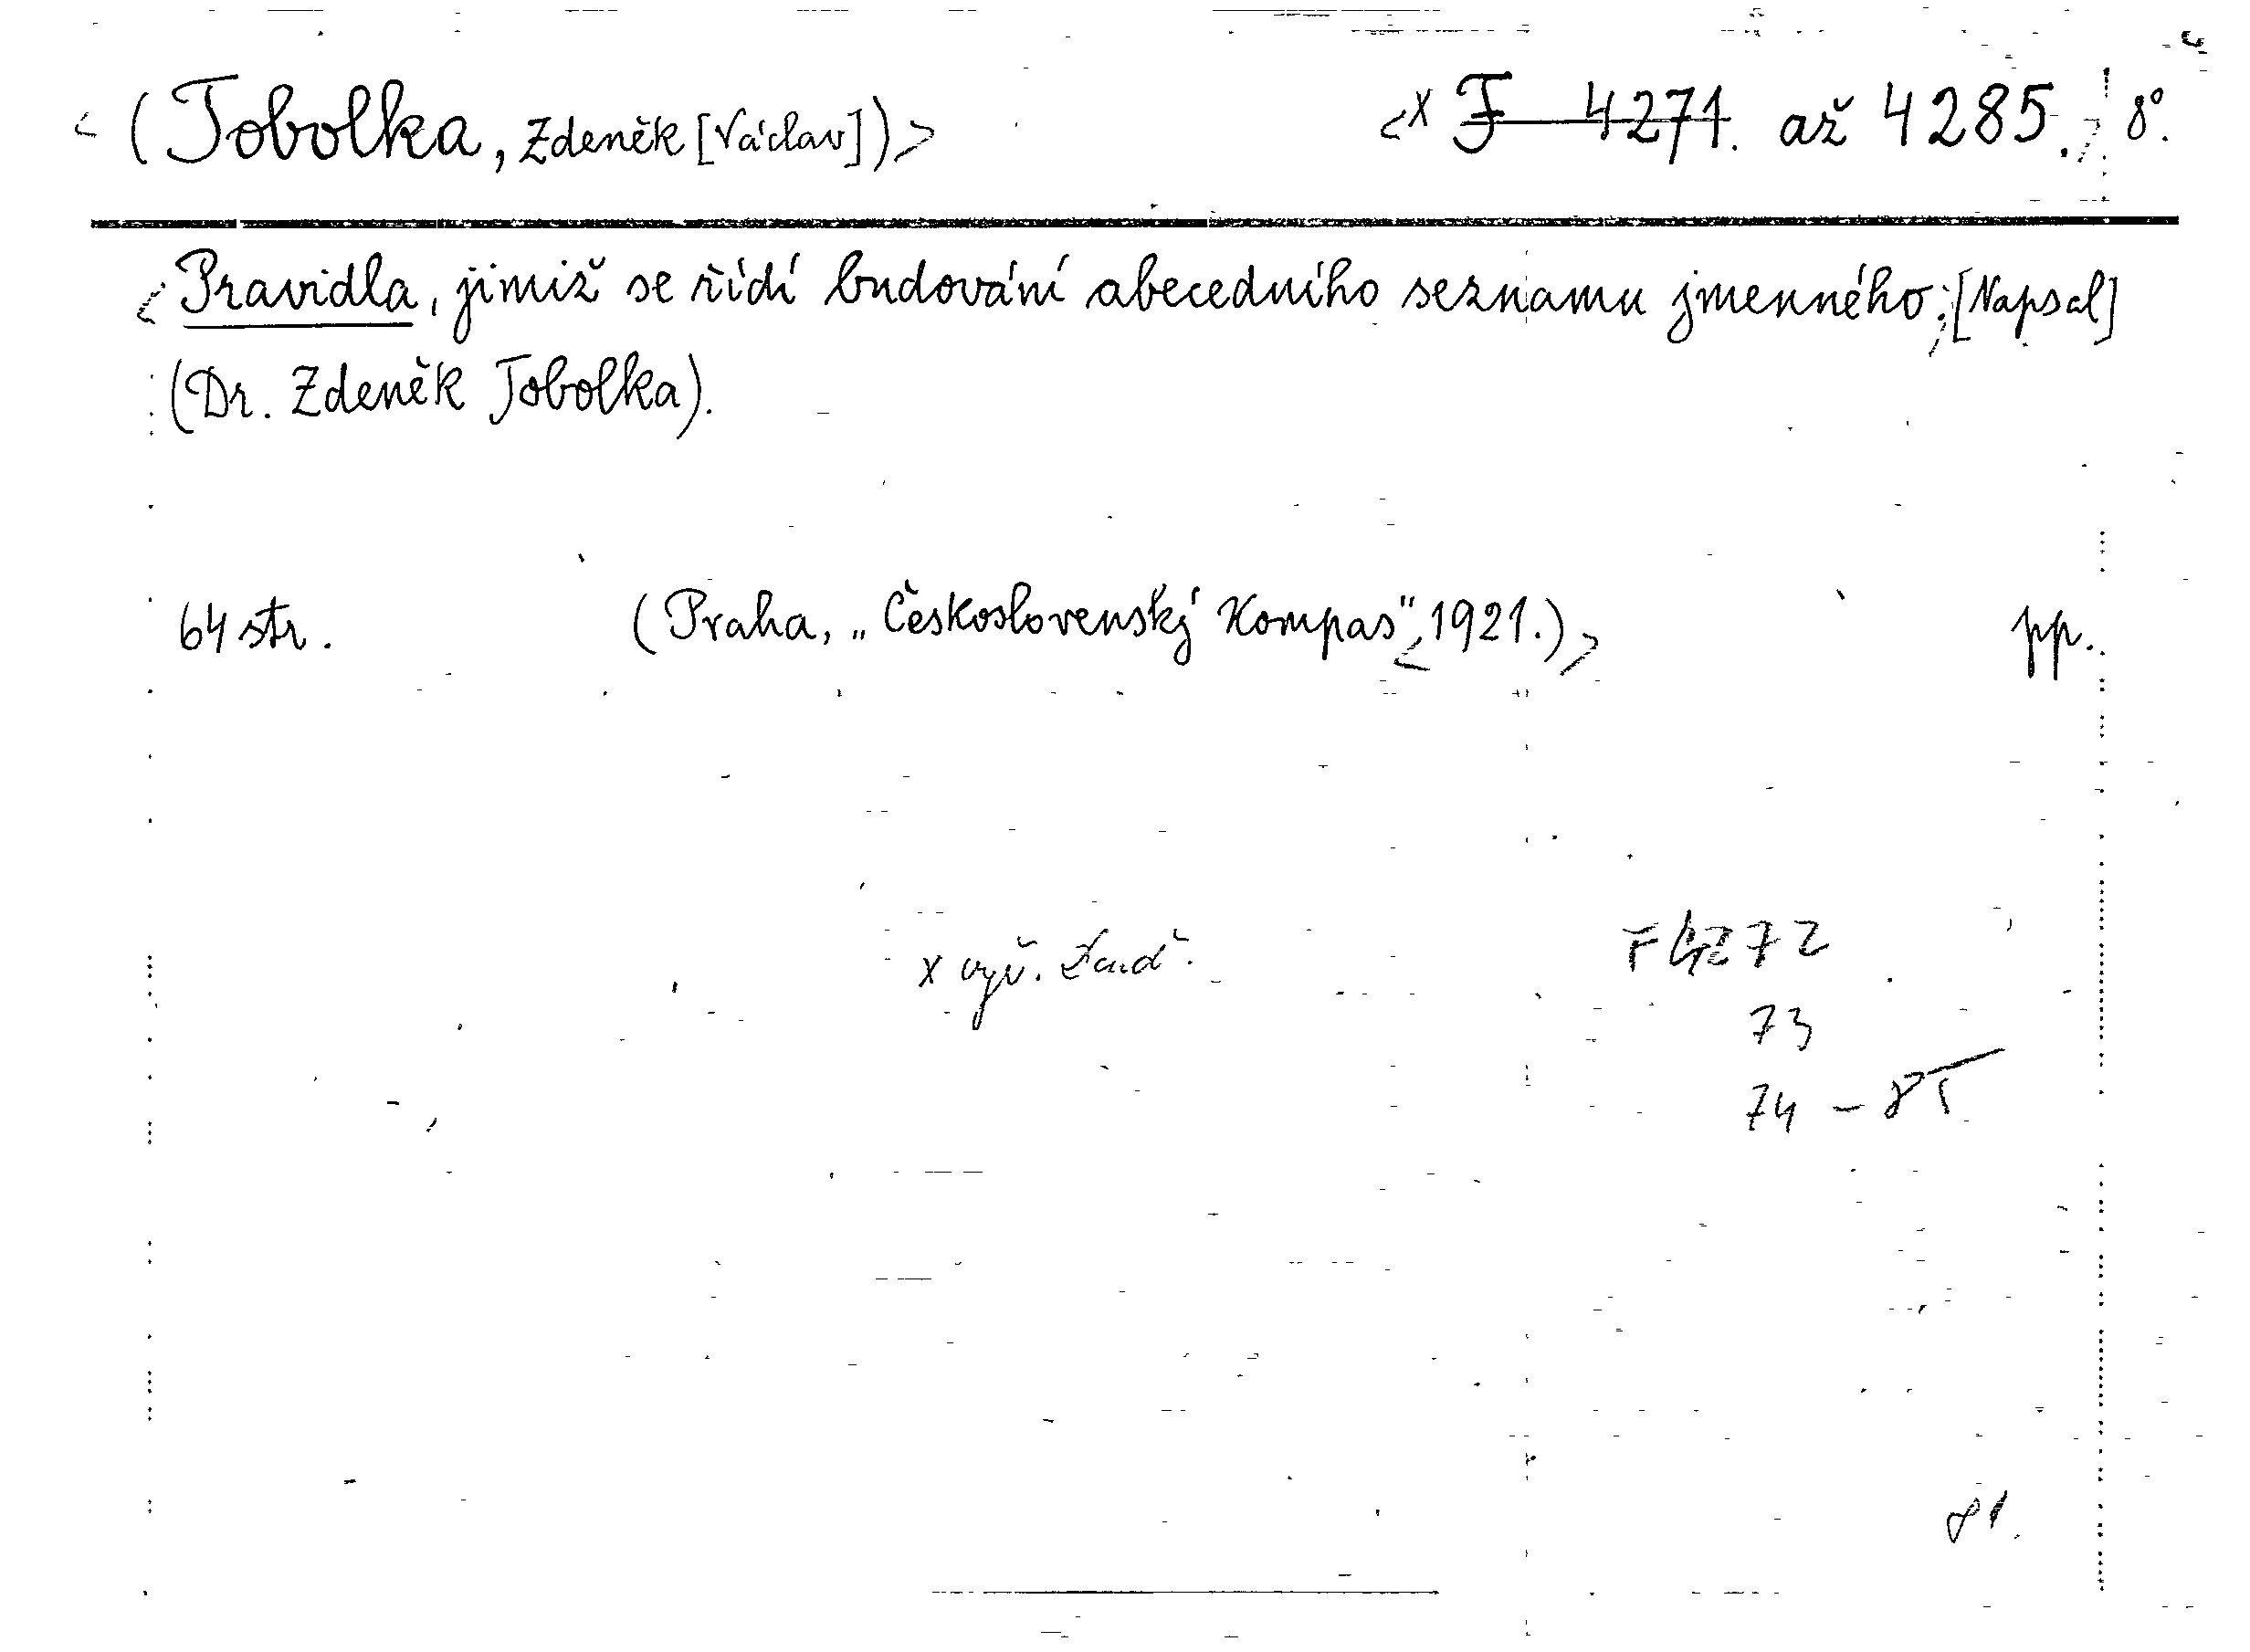 <(Tobolka, Zdeněk [Václav])> <x F 4271. až 4285.> 8°.
<Pravidla, jimiž se řídí budování abecedního seznamu jmenného; [Napsal]
(Dr. Zdeněk Tobolka).
64 str. (Praha, „Československý Kompas“, <1921.)> pp.
x vyř. F 4272
73
74 – 85
81.